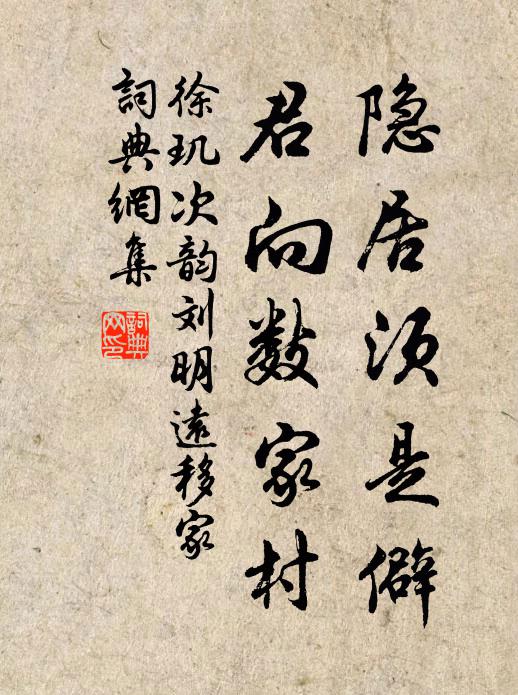 隐居须是僻
君向数家村
徐玑次韵刘明遠移家
詞典網集
詞典
网印